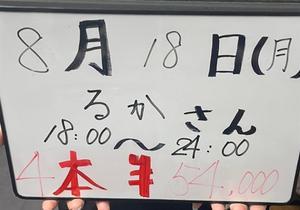 8月18日(月)
るかさん
18:00～24:00
4本半 54,000